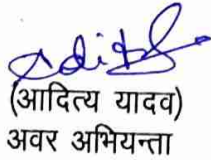 (आदित्य यादव)
अवर अभियन्ता